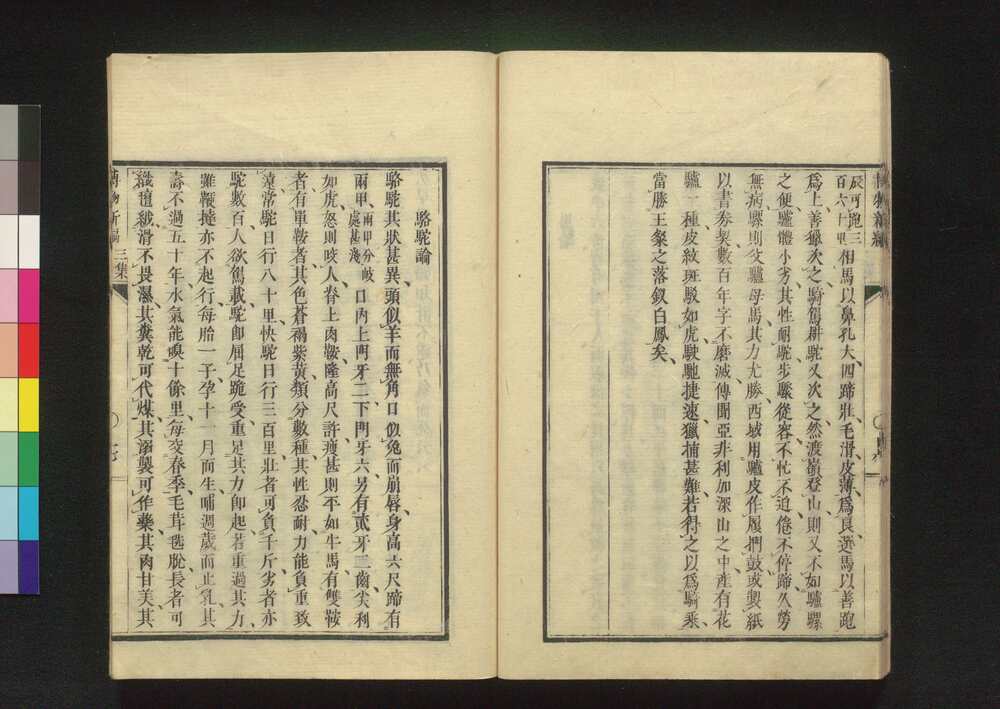 辰可跑三
百六十里
相馬以鼻孔大四蹄壯毛滑皮薄爲良選馬以善跑
爲上善獵次之騎駕耕駝又次之然渡嶺登山則又不如驢騾
之便驢體小劣其性耐駝步驟從容不忙不迫倦不停蹄久勞
無病騾則父驢母馬其力尤勝西域用驢皮作履捫鼓或製紙
以書券契數百年字不磨滅傳聞亞非利加深山之中產有花
驢一種皮紋斑駁如虎駛馳捷速獵捕甚難若得之以爲騎乘
當勝王粲之落釵白鳳矣
駱駝論
駱駝其狀甚異頭似羊而無角口似兔而崩唇身高六尺蹄有
兩甲
兩甲分岐
處甚淺
口內上門牙二下門牙六另有貳牙三齒尖利
如虎怒則咬人脊上肉鞍隆高尺許瘦甚則平如牛馬有雙鞍
者有單鞍者其色蒼褐紫黃類分數種其性忍耐力能負重致
遠常駝日行八十里快駝日行三百里壯者可負千斤劣者亦
駝數百人欲駕載駝即屈足跪受重足其力即起若重過其力
雖鞭撻亦不起行每胎一子孕十一月而生哺週歲而止乳其
壽不過五十年水氣能嗅十餘里每交春季毛茸毡脫長者可
織氊絨滑不畏濕其糞乾可代煤其溺製可作藥其肉甘美其
博物新編
三集